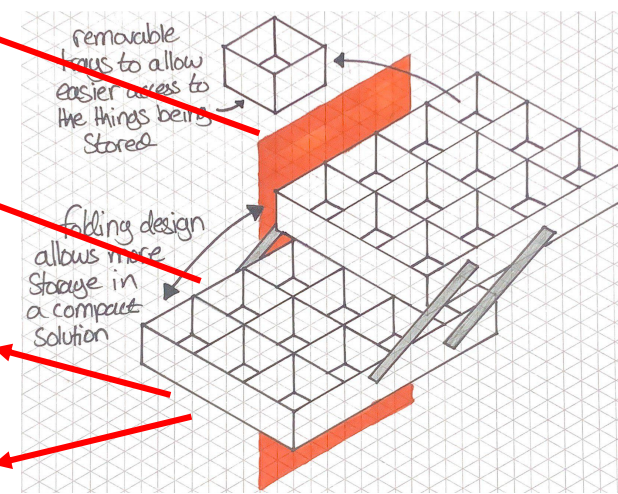 removable
trays to allow
easier access to
the things being
Stored
folding design
allows more
Storage in
a compact
Solution